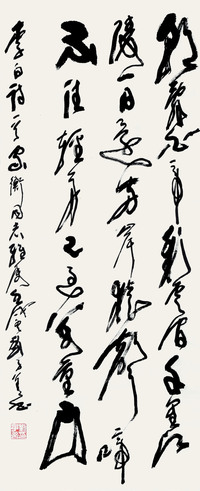 朝辞白帝彩雲间千里江
陵一日还两岸猿聲啼
不住轻舟已过万重山
李白诗一首 衡同志雅属